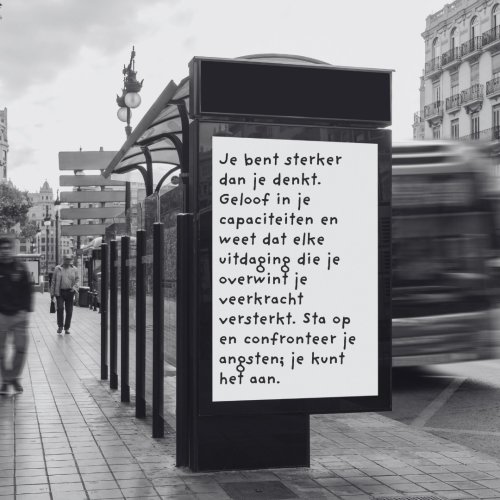 Je bent sterker
dan je denkt.
Geloof in je
capaciteiten en
weet dat elke
uitdaging die je
overwint je
veerkracht
versterkt. Sta op
en confronteer je
angsten; je kunt
het aan.